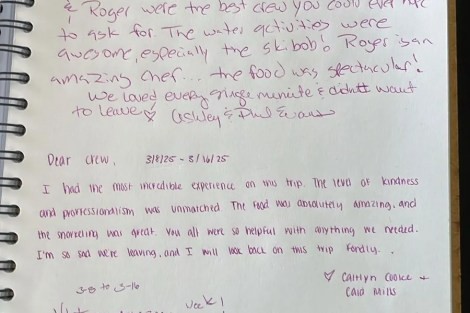 & Roger were the best crew you could ever
to ask for. The water activities were
awesome, especially the skibob! Roger is an
amazing chef... the food was spectacular!
We loved every single muniute & didntt want
to leave ♡ Ashley & Phil Evans
Dear crew, 3/8/25 - 3/16/25
I had the most incredible experience on this trip. The level of kindness
and professionalism was unmatched. The food was absolutely amazing, and
the snorkeling was great. You all were so helpful with anything we needed.
I'm so sad we're leaving, and I will look back on this trip fondly.
♡ Caitlyn Cooke +
Cara Mills
3-8 to 3-16
week!